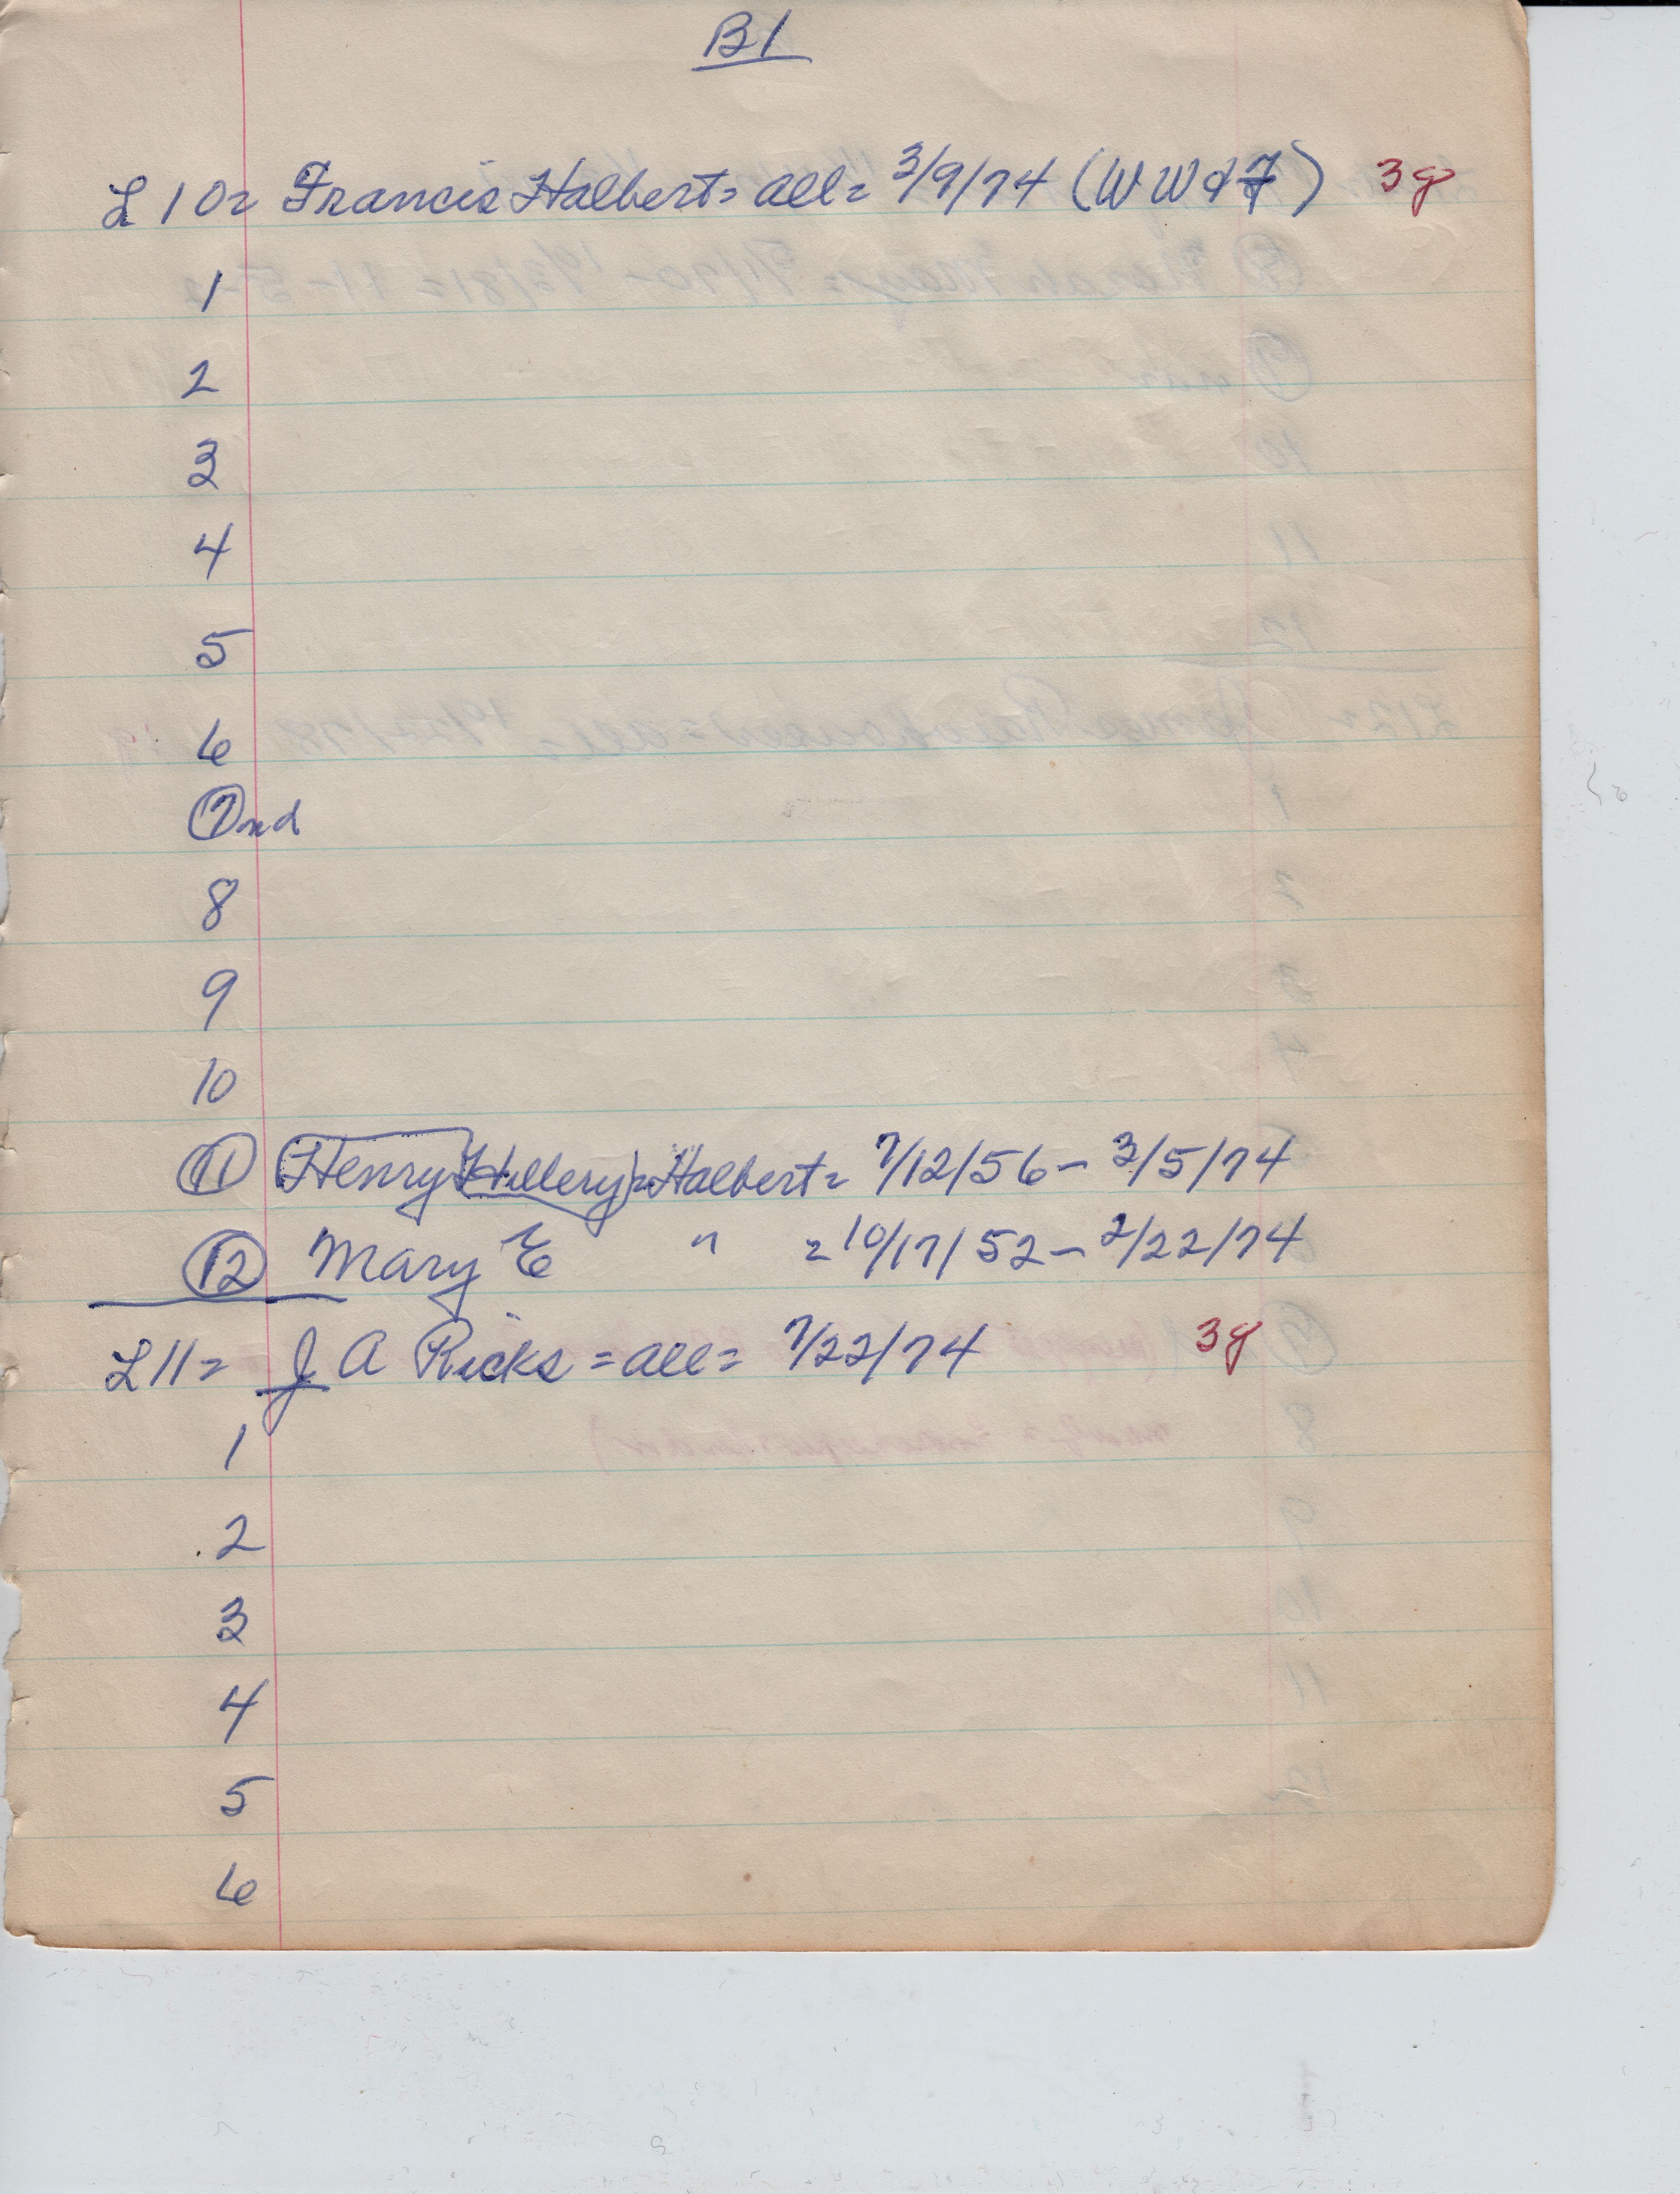 B1
L10= Francis Halbert= all= 3/9/74 (WW&F) 3g
1
2
3
4
5
6
7 nd
8
9
10
11 Henry (Hillery)= Halbert= 7/12/56 - 3/5/74
12 Mary E " = 10/17/52 - 2/22/74
L11= J A Ricks = all= 7/22/74 3g
1
2
3
4
5
6